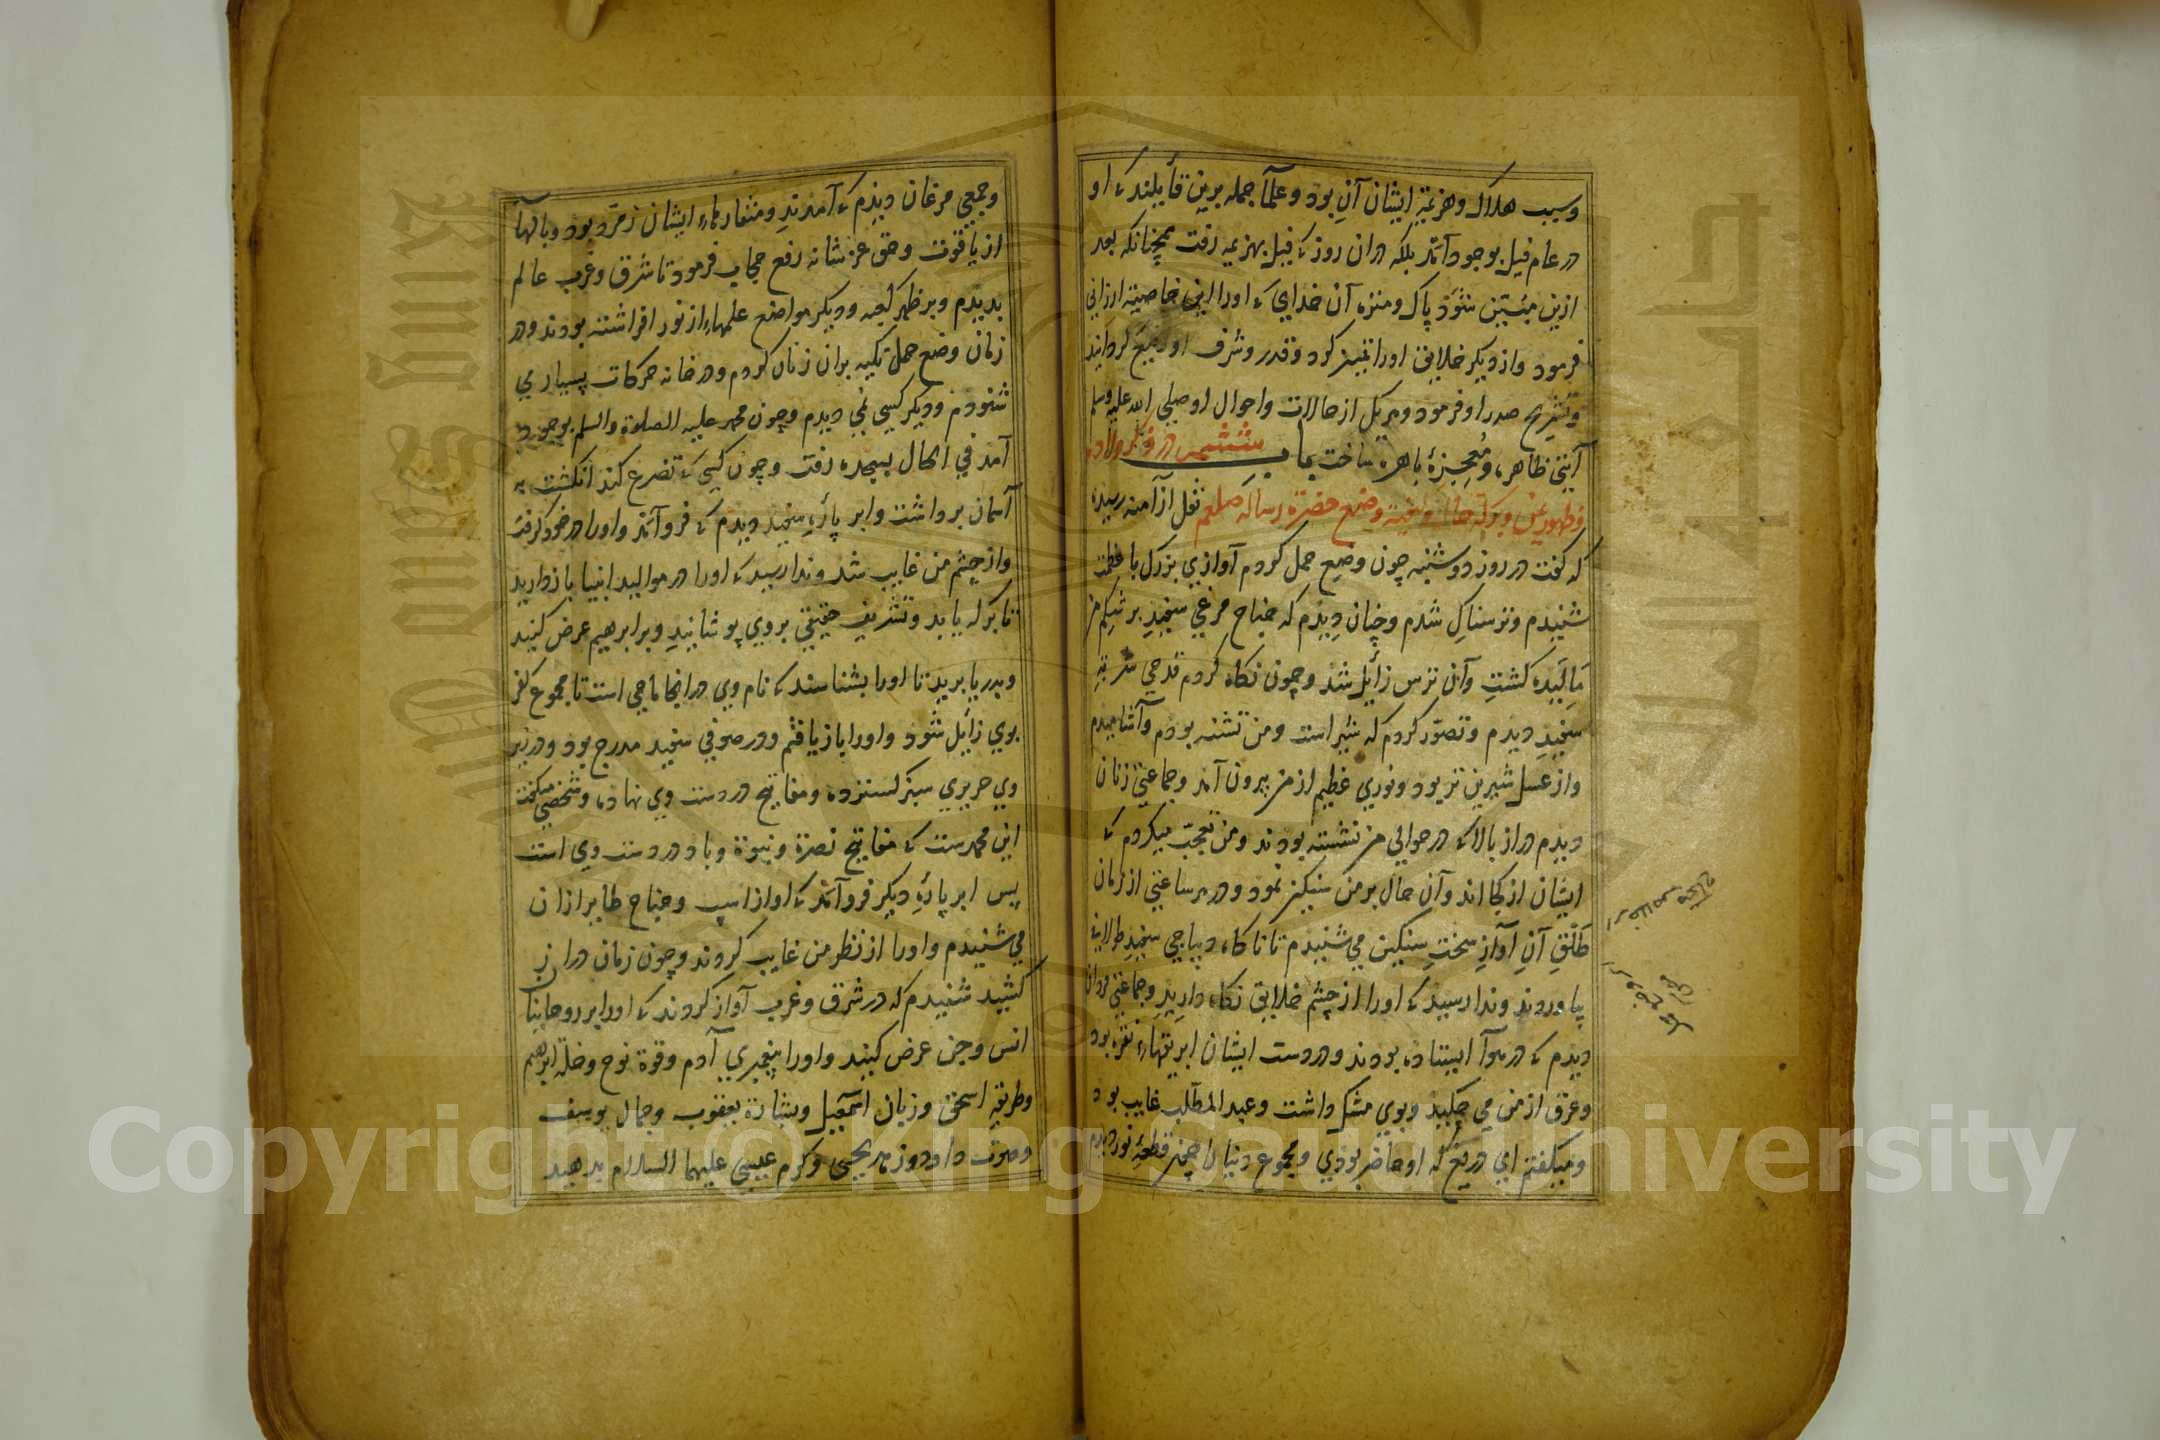 وسبب هلاک و هزیمة ایشان آن بود و علما جمله برین قایلند که او
در عام فیل بوجود آمد بلکه در ان روز که فیل بهزیمه رفت همچنانکه بعد
ازین مبین شود پاک و منزه آن خدایی که او را این خاصیة ارزانی
فرمود و از دیکر خلایق او را تمیز کرد و قدر و شرف او رفیع کردانید
و تشریح صدر او فرمود و هریک از حالات و احوال او صلی الله علیه وسلم
آیتی ظاهره و معجزۀ باهره ساخت باب ششم در ذکر ولاده
و ظهور یمن و برکة وضع حضرة رساله صلعم نقل از آمنه رسیده
که گفت در روز دوشنبه چون وضع حمل کردم آوازی بزرک با عظمت
شنیدم و ترسناک شدم و چنان دیدم که جناح مرغی سفید بر شکم من
مالیده کشت و آن ترس زایل شد و چون نکاه کردم قدحی شربة
سفید دیدم و تصور کردم که شیر است و من تشنه بودم و آشامیدم
و از عسل شیرین تر بود و نوری عظیم از من بیرون آمد و جماعتی زنان
دیدم دراز بالا که در حوالی من نشسته بودند و من تعجب میکردم که
ایشان از کجا اند و آن حال بر من سنکین نمود و در هر ساعتی از زمان
طلق آن آواز سخت سنکین می شنیدم تا ناکاه دیباجی سفید طولانی
بیاوردند و ندا رسید که او را از چشم خلایق نکاه دارید و جماعتی مردان
دیدم که در هوا ایستاده بودند و در دست ایشان ابریقهاء نقره بود
و عرق از من می چکید و بوی مشک داشت و عبد المطلب غایب بود
و میکفتم ای دریغ که او حاضر بودی و مجموع دنیا را همچو قطعۀ نور دیدم
و جمعی مرغان دیدم که آمدند و منقارهاء ایشان زمرد بود و بالها
از یاقوت و حق عز شانه رفع حجاب فرمود تا شرق و غرب عالم
بدیدم و بر ظهر کعبه و دیکر مواضع علمهاء از نور افراشته بودند و در
زمان وضع حمل تکیه بران زنان کردم و در خانه حرکات بسیار می
شنودم و دیکر کسی نمی دیدم و چون محمد علیه الصلوة والسلم بوجود
آمد فی الحال بسجده رفت و چون کسی که تضرع کند انکشت به
آسمان برداشت و ابر پارۀ سفید دیدم که فرو آمد و او را در خود کرفت
و از چشم من غایب شد و ندا رسید که او را در موالید انبیا باز دارید
تا برکه یابد و تشریف حقیقی بر وی پوشانید و بر ابرهیم عرض کنید
و بدریا برید تا او را بشناسند که نام وی در انجا ماحی است تا مجموع کفر
بوی زایل شود و او را باز یافتم و در صوفی سفید مدرج بود و در زیر
وی حریری سبز کسترده و مفاتیح در دست وی نهاده و شخصی میکفت
این محمدست که مفاتیح نصرة و نبوة و باد در دست وی است
پس ابر پارۀ دیکر فرو آمد که آواز اسپ و جناح طایر ازان
می شنیدم و او را از نظر من غایب کردند و چون زمان دراز
کشید شنیدم که در شرق و غرب آواز کردند که او را بر روحانیان
انس و جن عرض کنید و او را پیغمبری آدم و قوة نوح و خلة ابرهیم
و طریقه اسحق و زبان اسمعیل و بشارة یعقوب و جمال یوسف
و صوت داود و زهد یحیی و کرم عیسی علیهما السلام بدهید
King Saud University
جامعة الملك سعود
Copyright © King Saud University